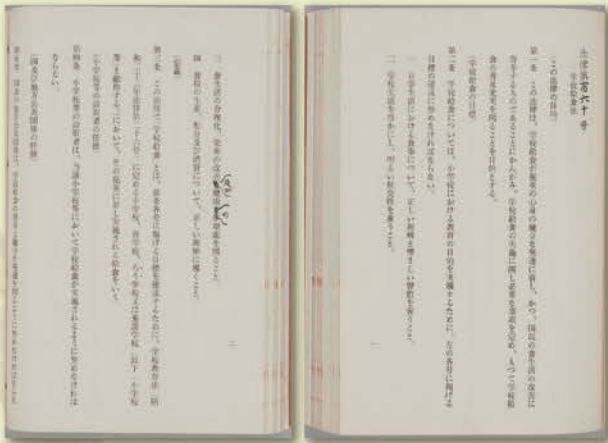 法律第百六十号
学校給食法
（この法律の目的）
第一条　この法律は、学校給食が児童の心身の健全な発達に資し、かつ、国民の食生活の改善に
寄与するものであることにかんがみ、学校給食の実施に関し必要な事項を定め、もつて学校給
食の普及充実を図ることを目的とする。
（学校給食の目標）
第二条　学校給食については、小学校における教育の目的を実現するために、左の各号に掲げる
目標の達成に努めなければならない。
一　日常生活における食事について、正しい理解と望ましい習慣を養うこと。
二　学校生活を豊かにし、明るい社交性を養うこと。
一
三　食生活の合理化、栄養の改善及び健康の増進を図ること。
四　食糧の生産、配分及び消費について、正しい理解に導くこと。
（定義）
第三条　この法律で「学校給食」とは、前条各号に掲げる目標を達成するために、学校教育法（昭
和二十二年法律第二十六号）に定める小学校、盲学校、ろう学校又は養護学校（以下「小学校
等」と総称する。）において、その児童に対し実施される給食をいう。
（小学校等の設置者の任務）
第四条　小学校等の設置者は、当該小学校等において学校給食が実施されるように努めなければ
ならない。
（国及び地方公共団体の任務）
第五条　国及び地方公共団体は、学校給食の普及と健全な発達を図るように努めなければならな
二